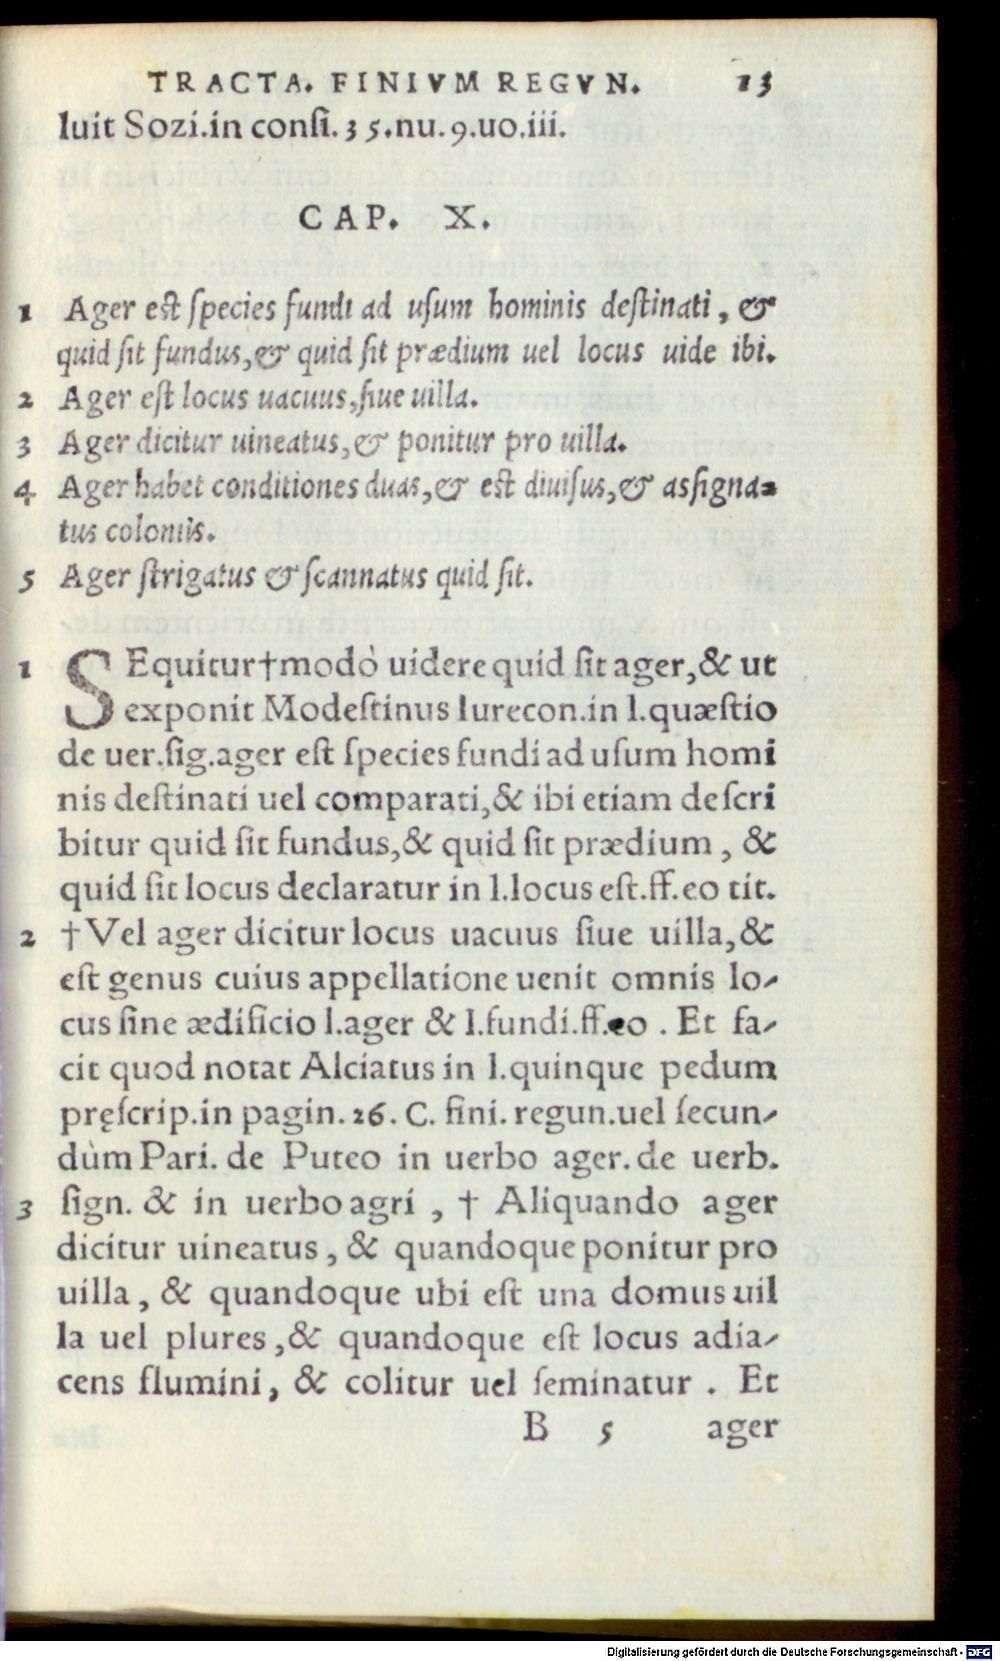 TRACTA. FINIVM REGVN. 13
luit Sozi.in consi.35.nu.9.uo.iii.
CAP. X.
1 Ager est species fundi ad usum hominis destinati, &
quid sit fundus,& quid sit prædium uel locus uide ibi.
2 Ager est locus uacuus,siue uilla.
3 Ager dicitur uineatus,& ponitur pro uilla.
4 Ager habet conditiones duas,& est diuisus,& assigna-
tus coloniis.
5 Ager strigatus & scannatus quid sit.
1 SEquitur†modò uidere quid sit ager,& ut
exponit Modestinus Iurecon.in l.quæstio
de uer.sig.ager est species fundi ad usum homi
nis destinati uel comparati,& ibi etiam descri
bitur quid sit fundus,& quid sit prædium, &
quid sit locus declaratur in l.locus est.ff.eo tit.
2 †Vel ager dicitur locus uacuus siue uilla,&
est genus cuius appellatione uenit omnis lo-
cus sine ædificio l.ager & l.fundi.ff.eo. Et fa-
cit quod notat Alciatus in l.quinque pedum
pręscrip.in pagin.26. C. fini. regun.uel secun-
dùm Pari. de Puteo in uerbo ager. de uerb.
3 sign. & in uerbo agri, † Aliquando ager
dicitur uineatus, & quandoque ponitur pro
uilla, & quandoque ubi est una domus uil
la uel plures,& quandoque est locus adia-
cens flumini, & colitur uel seminatur. Et
B 5 ager
Digitalisierung gefördert durch die Deutsche Forschungsgemeinschaft - DFG